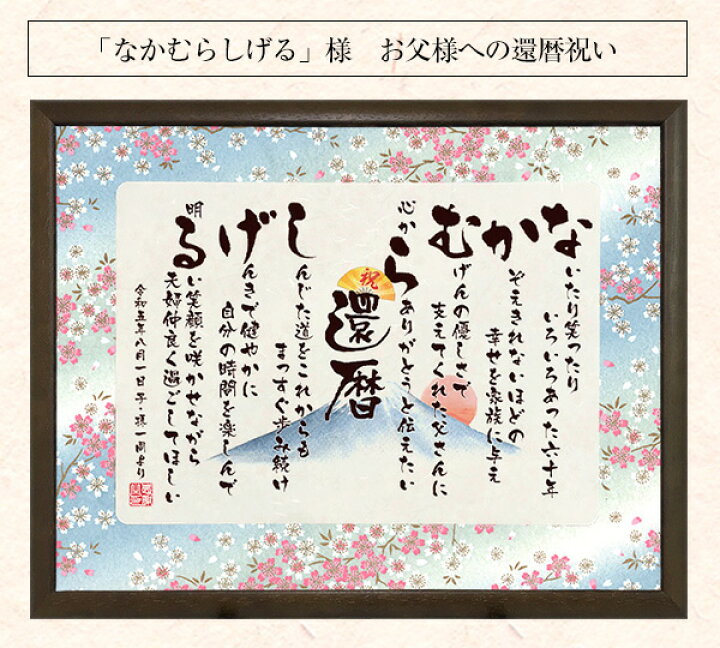 「なかむらしげる」様　お父様への還暦祝い
ないたり笑ったり
いろいろあった六十年
かぞえきれないほどの
幸せを家族に与え
むげんの優しさで
支えてくれた父さんに
心から
ありがとうと伝えたい
祝
還暦
しんじた道をこれからも
まっすぐ歩み続け
げんきで健やかに
自分の時間を楽しんで
明るい笑顔を咲かせながら
夫婦仲良く過ごしてほしい
令和五年八月一日 子・孫一同より